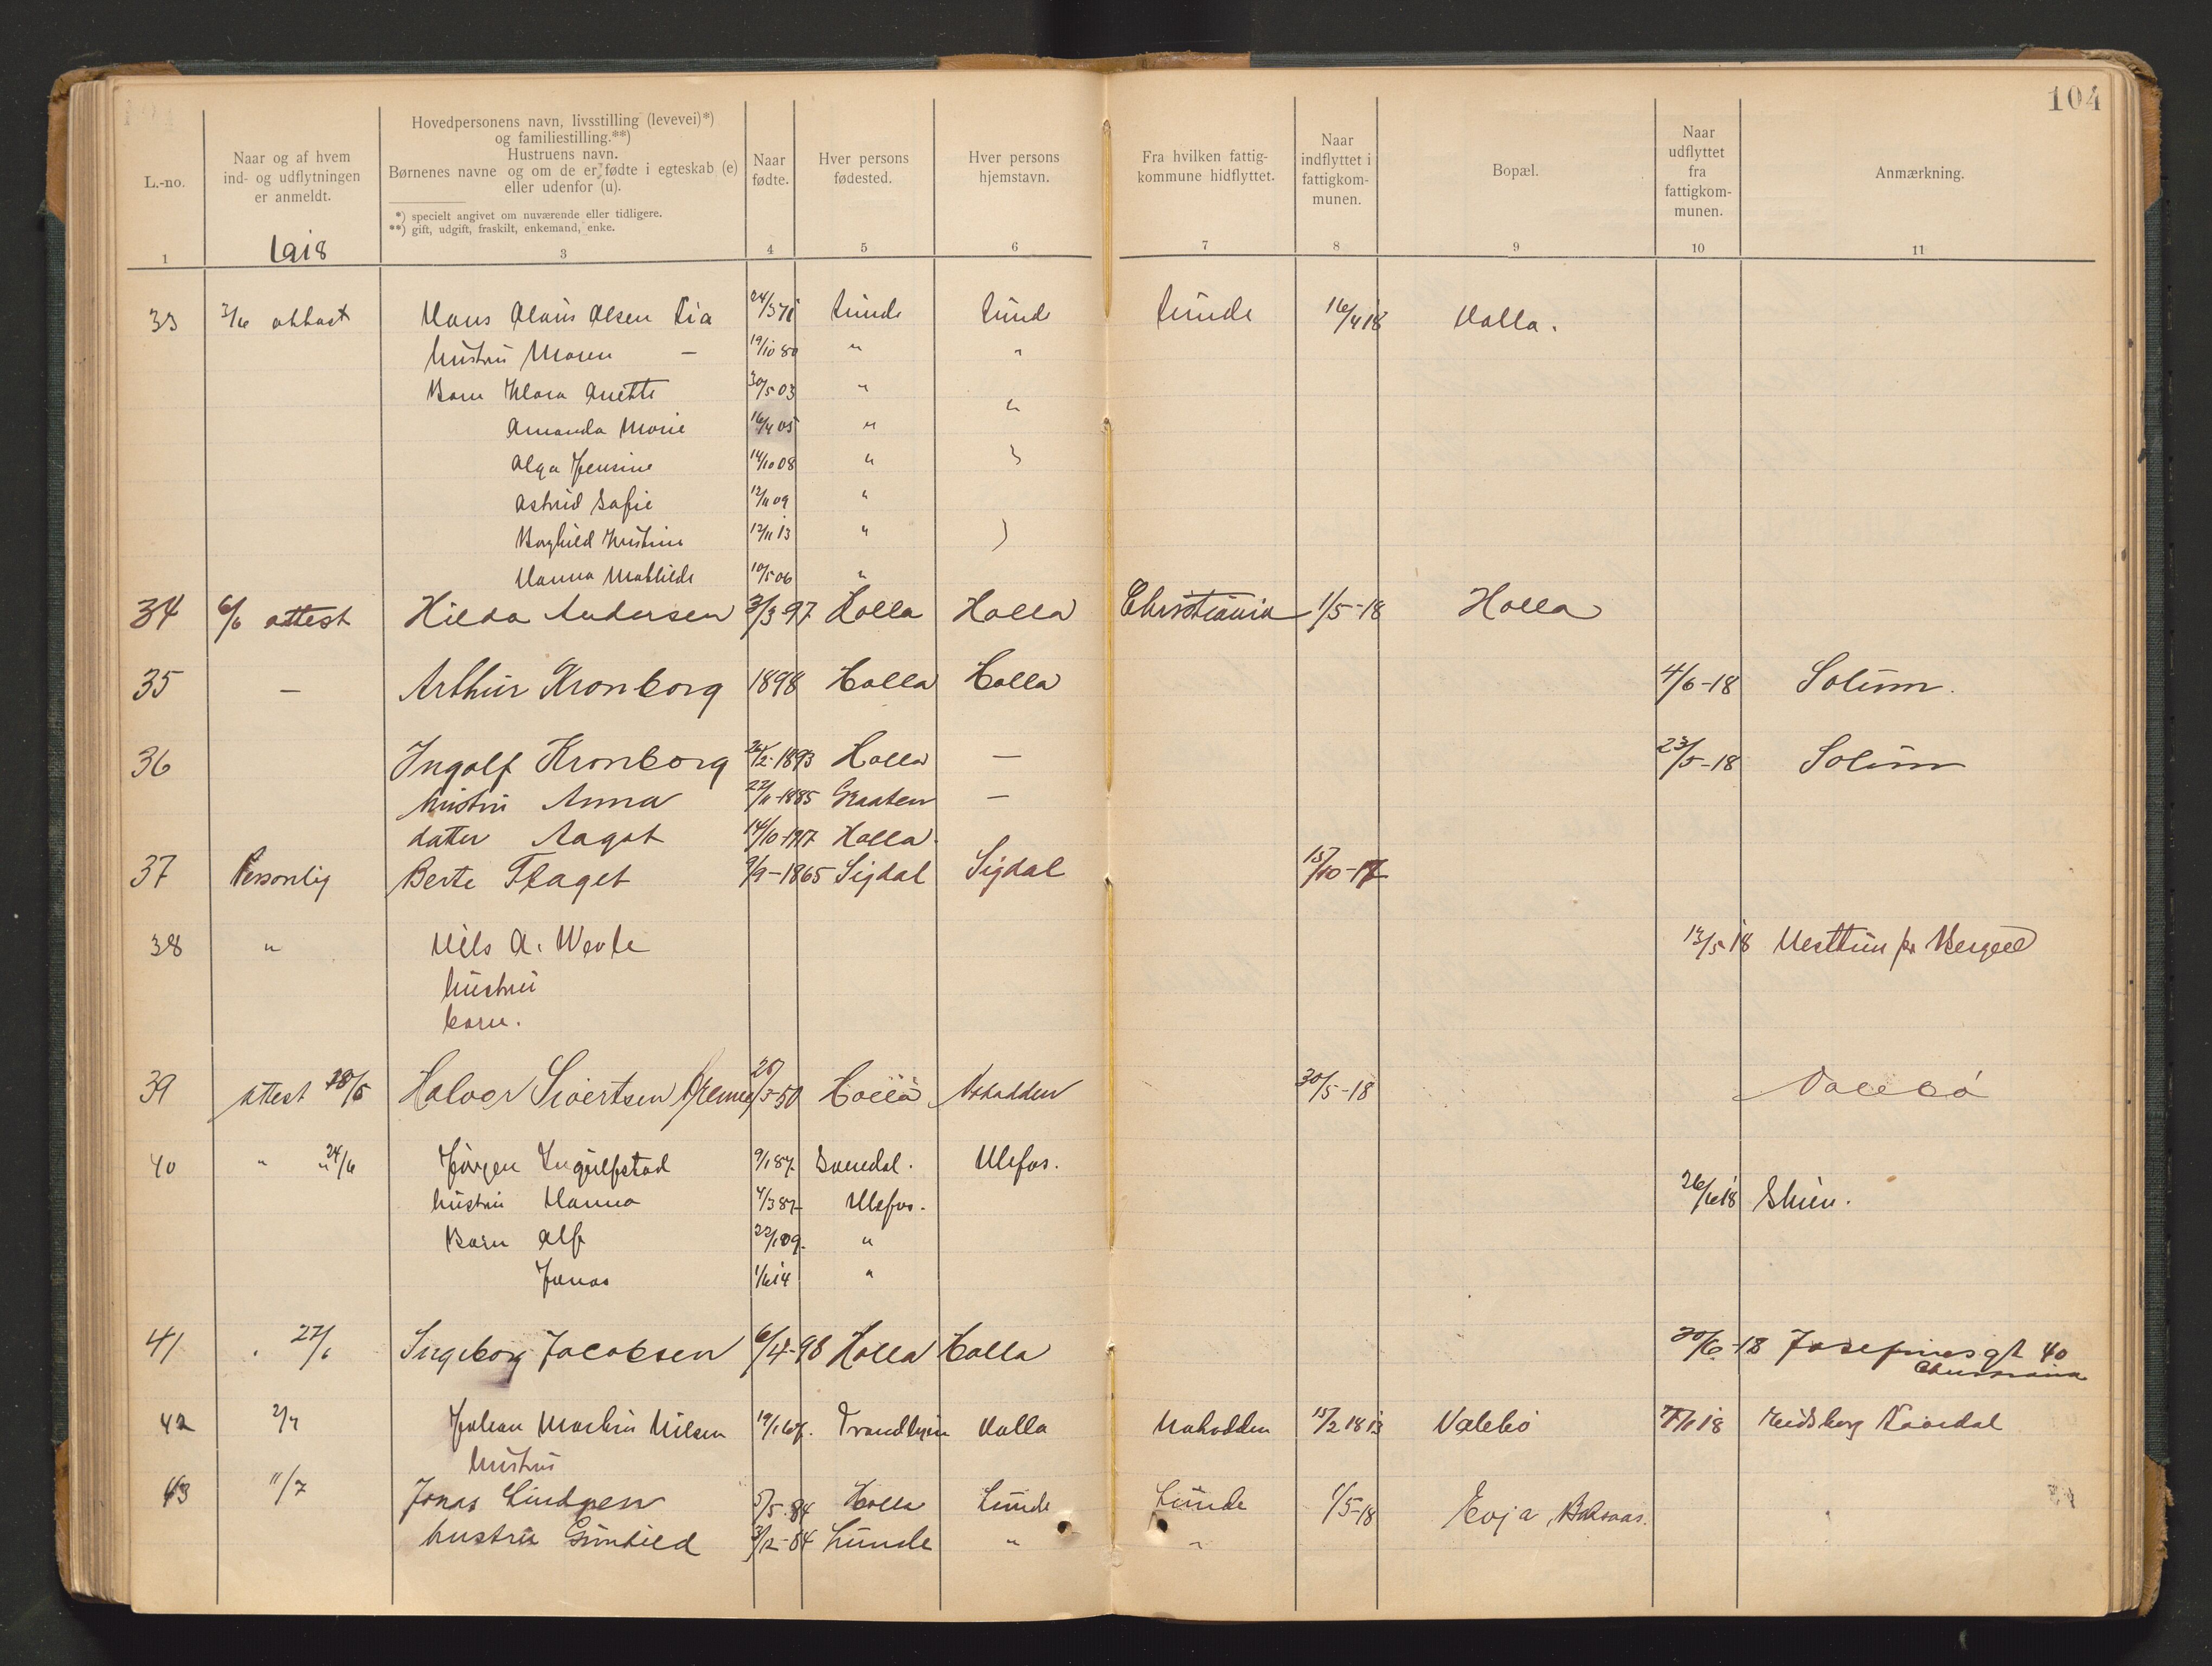 104
L.-no.
Naar og af hvem
ind- og udflytningen
er anmeldt.
Hovedpersonens navn, livsstilling (levevei)*)
og familiestilling.**)
Hustruens navn.
Børnenes navne og om de er fødte i egteskab (e)
eller udenfor (u).
*) specielt angivet om nuværende eller tidligere.
**) gift, udgift, fraskilt, enkemand, enke.
Naar
fødte.
Hver persons
fødested.
Hver persons
hjemstavn.
Fra hvilken fattig-
kommune hidflyttet.
Naar
indflyttet i
fattigkom-
munen.
Bopæl.
Naar
udflyttet
fra
fattigkom-
munen.
Anmærkning.
1 1918 3 4 5 6 7 8 9 10 11
33 3/6 attest Hans Olaus Olsen Lia 24/3 Lunde Lunde Lunde 16/4 18 Holla.
hustru Maren — 19/10 80 " "
Barn Klara Anette 30/5 03 " "
Amanda Marie 16/4 05 "
Olga Jensine 14/10 08 "
Astrid Sofie 12/11 09 "
Borghild Kristine 12/11 13 "
Hanna Mathilde 10/5 06 "
34 6/6 attest Hilda Andersen 3/3-97 Holla Holla Christiania 1/5-18 Holla
35 — Arthur Kronborg 1898 Holla Holla 4/6-18 Solum.
36 Ingolf Kronborg 1893 Holla — 23/5-18 Solum
hustru Anna 22/11-1885 —
datter Aagot 14/10-1917 Holla.
37 Personlig Berte Flaget 9/9-1865 Sigdal Sigdal 15/10-17
38 " Nils A. 13/5 18 Nesttun pr Bergen
hustru
barn.
39 attest Halvor Sivertsen Holla Notodden 30/5-18 Valebø
40 " " 24/6 Jørgen Ingulfstad 9/1 87. Ulefos.
hustru Hanna 4/3 87 Ulefos. 26/6 18 Skien.
Barn Alf 22/1 09. "
Jonas 1/6 14 "
41 " 27/6 Ingeborg Jacobsen 6/4-98 Holla Holla 30/6-18 Josefinesgt 40
Christiania
42 2/7 Johan Martin Nilsen 19/1 67. Trondhjem Holla Notodden 15/2 18 Valebø 18 Eidsborg
hustru
43 11/7 Jonas Lindgren 5/5-84 Holla Lunde Lunde 1/5-18
hustru Gunhild 3/12-84 Lunde " "